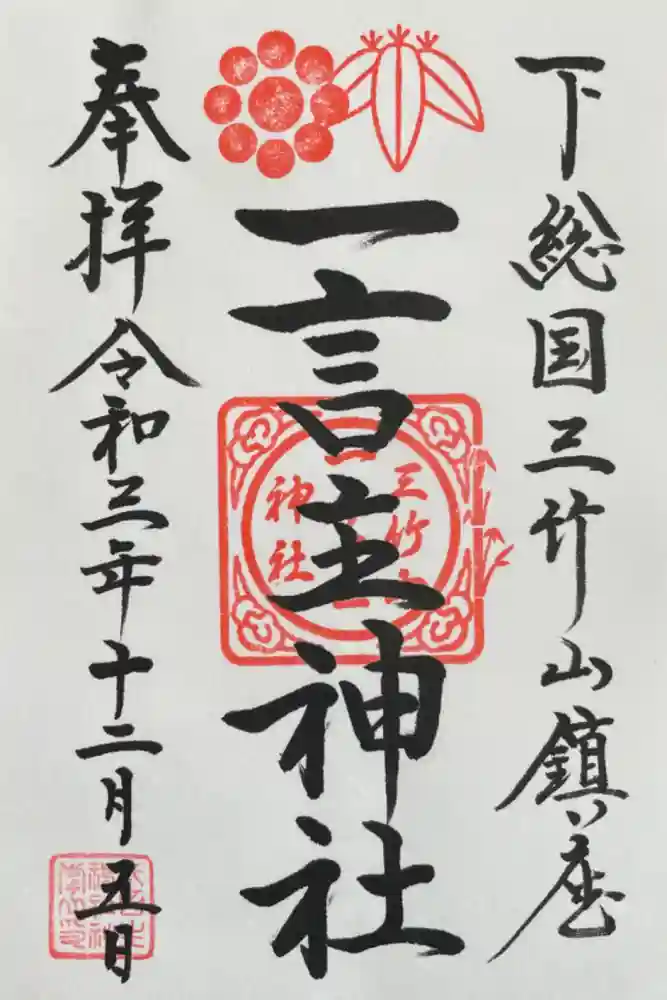 下総国三竹山鎮座
一言主神社
奉拝令和三年十二月五日
三竹山
神社